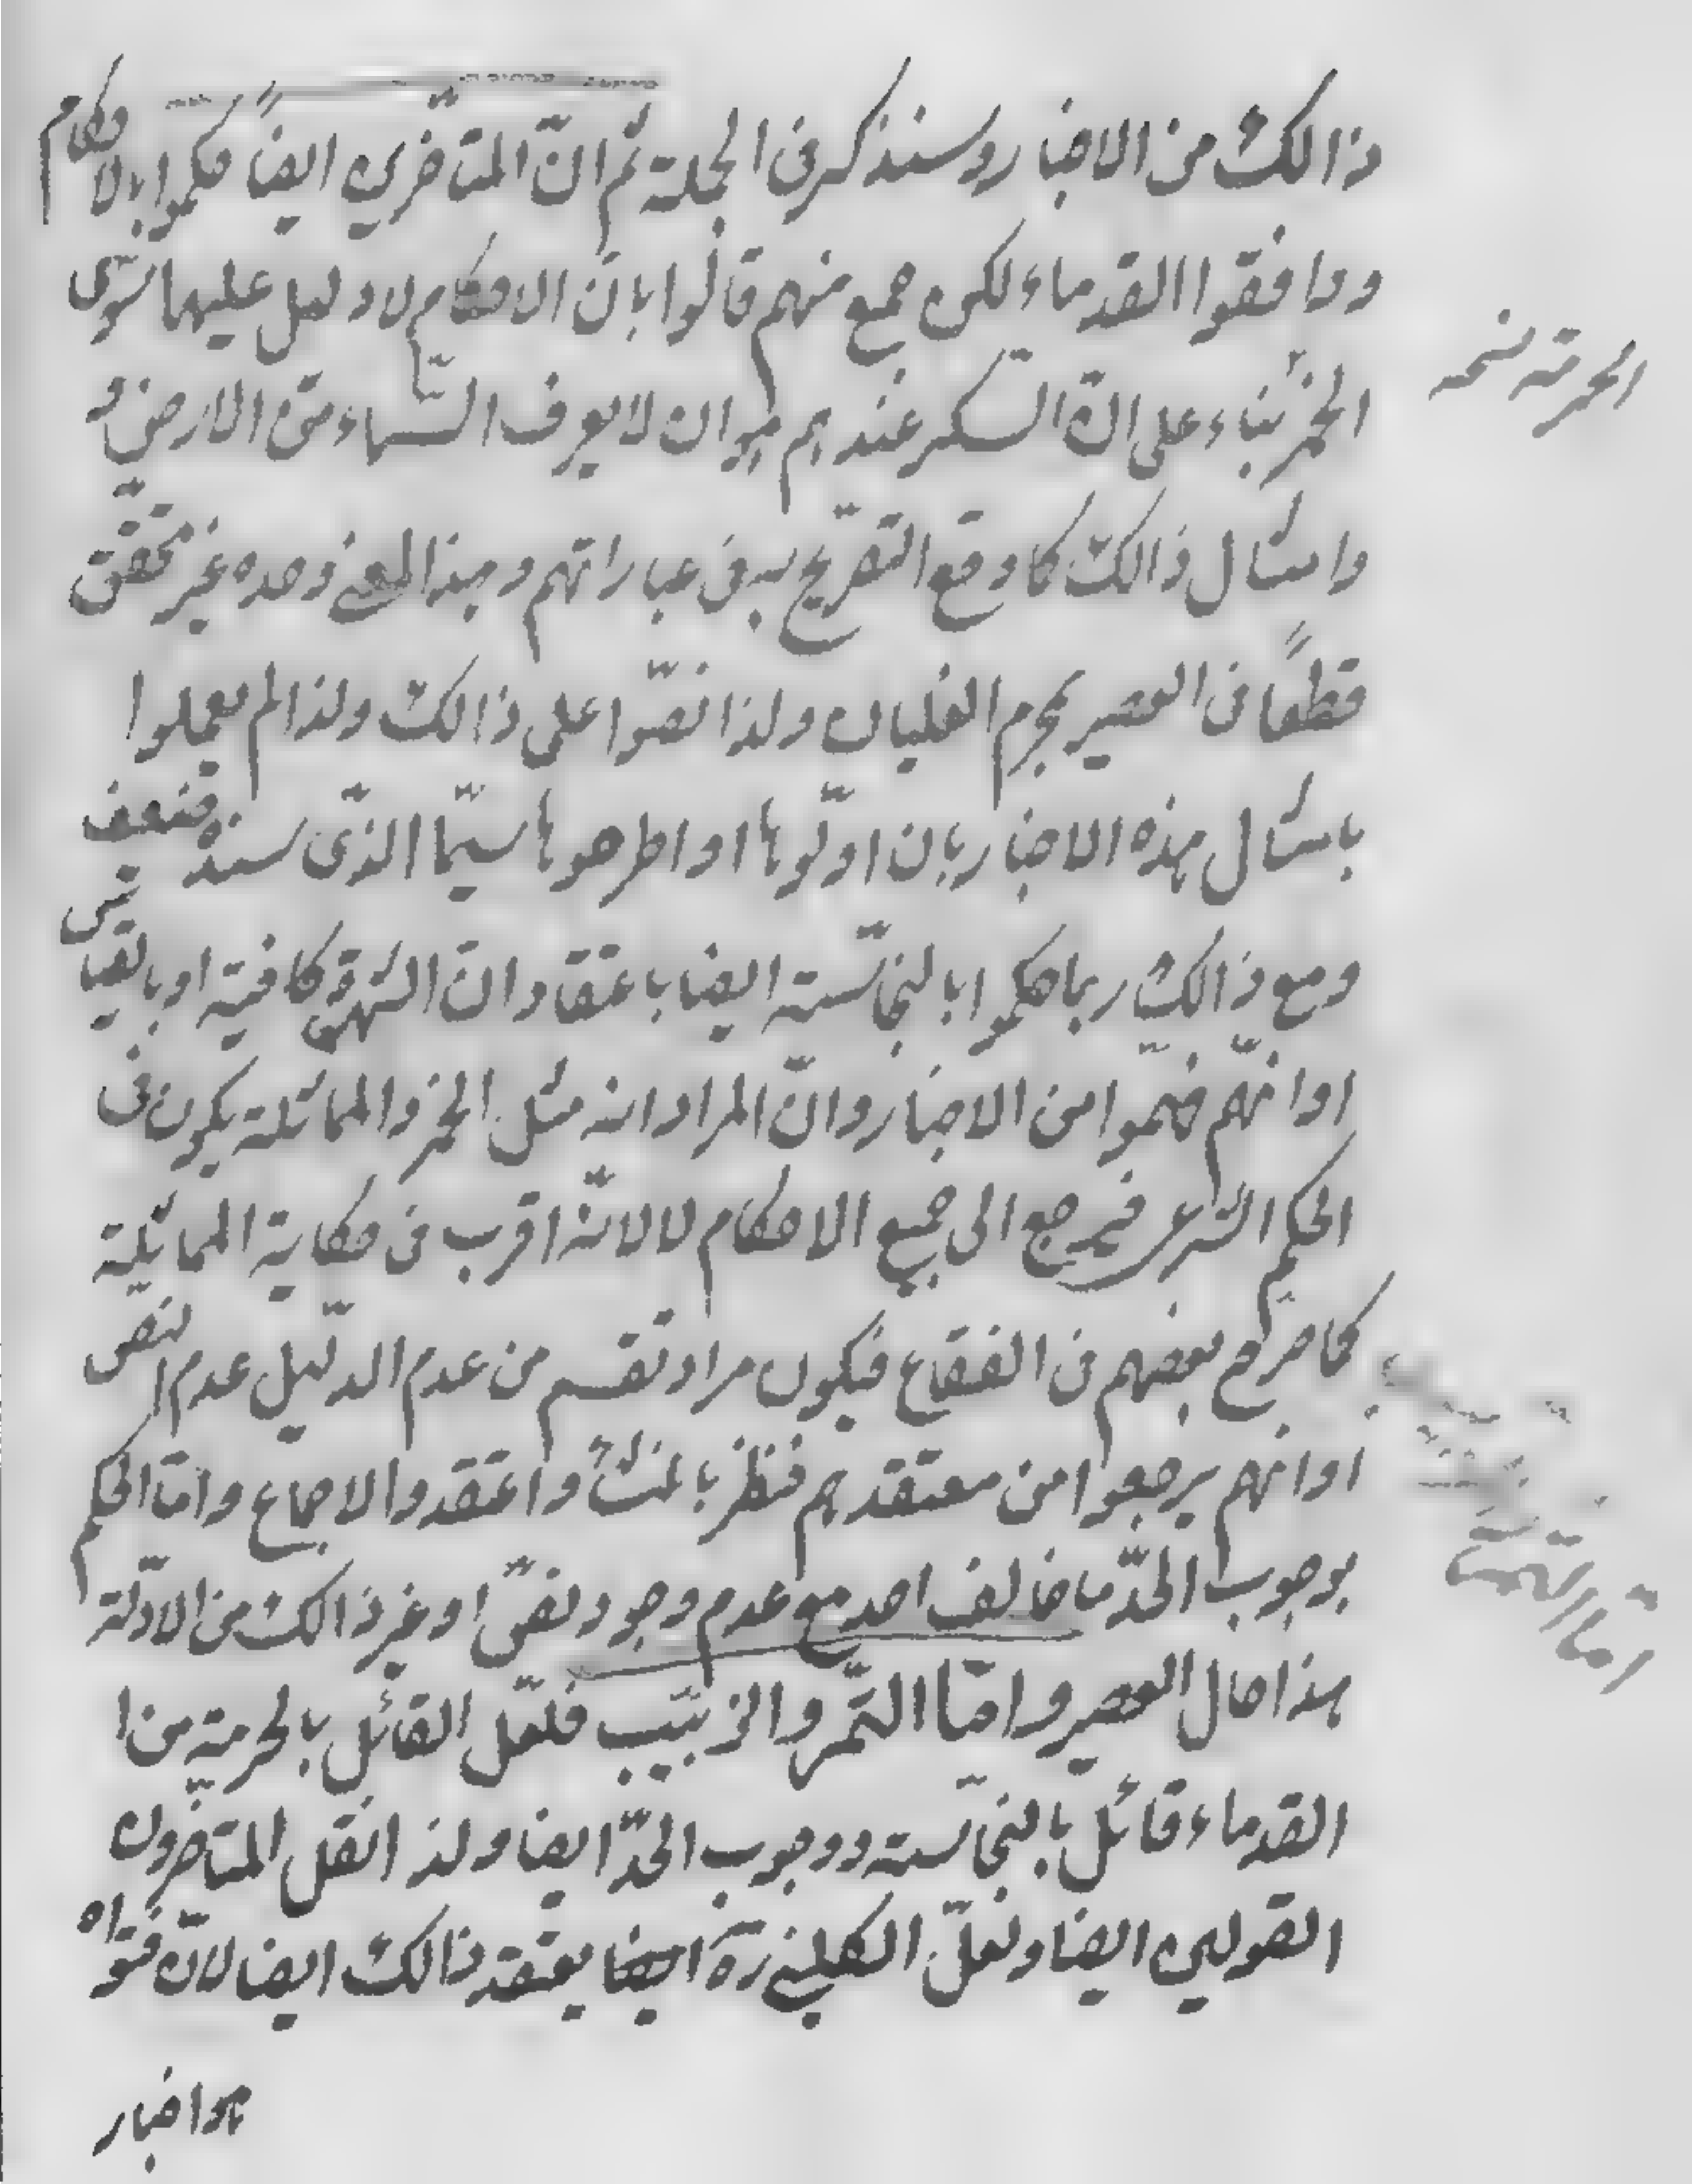 ذالك من الاخبار وسنذكر فى الجملة ثم انّ المتأخرين ايضاً حكموا بالاحكام
ووافقوا القدماء لكن جمع منهم قالوا بانّ الاحكام لا دليل عليها سوى
الحرمة نسخه
الخمر بناء على انّ السكر عندهم هو ان لا يعرف السّماء من الارض و
وامثال ذالك كما وقع التصريح به فى عباراتهم و هذا المعنى وحده غير محقق
قطعاً فى العصير بمجرم الغليان ولذا نصّوا على ذالك ولذا لم يعملوا
بامثال هذه الاخبار بان اوّلوها او اطرحوها سيّما الذّى سنده ضعف
ومع ذالك ربما حكموا بالنجاسة ايضا باعتقاد انّ الشهرة كافية او بالقياس
او انهم فهموا من الاخبار وانّ المراد انه مثل الخمر والمماثلة يكون فى
الحكم الشرعى فيرجع الى جميع الاحكام لا لانّه اقرب فى حكاية المماثلة
كما صرح بعضهم فى الفقاع فيكون مراد نقسم من عدم الدّليل عدم النصّ
او انهم يرجعوا من معتقدهم فنظر بالمنشأ واعتقدوا الاجماع وامّا الحكم
بوجوب الحدّ ما خالف احد مع عدم وجود نصّ او غير ذالك من الادلّة
امّا التمرى
هذا حال العصير وامّا التّمر والزبيب فلعّل القائل بالحرمية من ا
القدماء قائل بالنجاسة ووجوب الحدّ ايضا ولذا نقل المتاخرون
القولين ايضا ولعلّ الكلينى ره ايضا يعتقد ذالك ايضا لانّ فتواه
هو اخبار